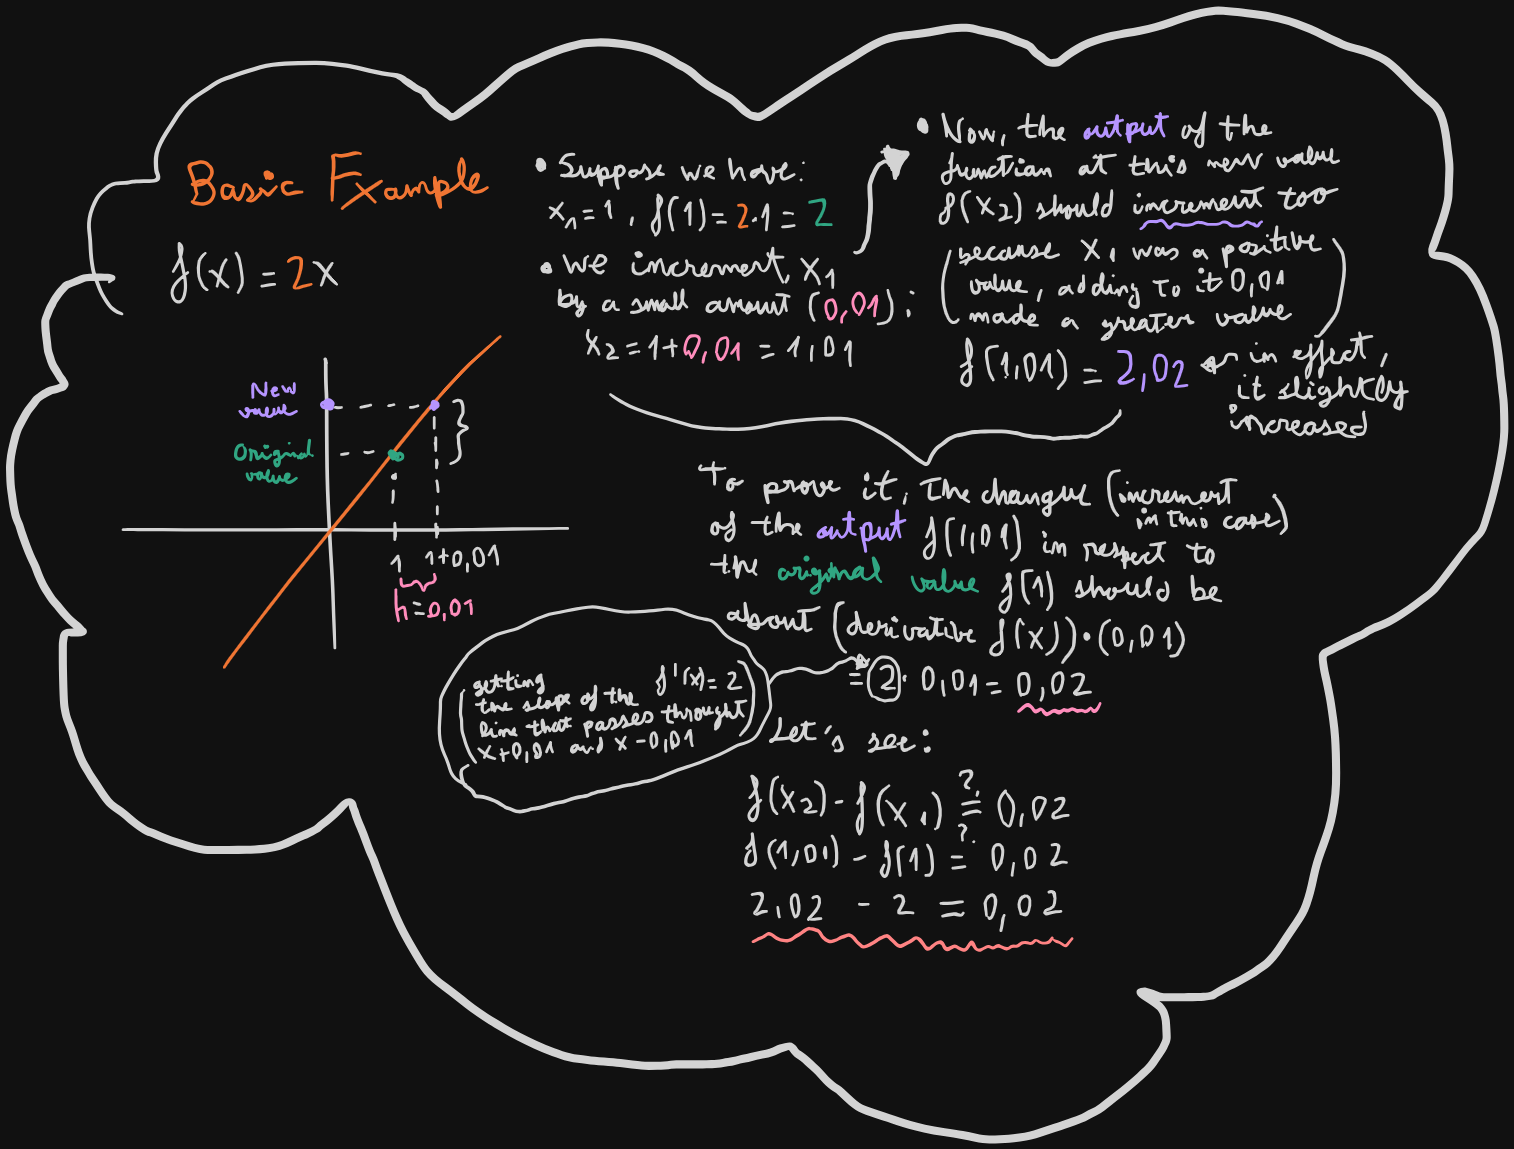 Basic Example
f(x) = 2x
New
value
Original
value
1
1+0,01
h=0,01
• Suppose we have:
x₁=1, f(1)=2·1=2
• We increment x₁
by a small amount (0,01);
x₂=1+0,01=1,01
• Now, the output of the
function at this new value
f(x₂) should increment too
(because x₁ was a positive
value, adding to it 0,01
made a greater value)
f(1,01) = 2,02
in effect,
it slightly
increased
To prove it, the change (increment
in this case)
of the output f(1,01) in respect to
the original value f(1) should be
about (derivative f(x))·(0,01)
= 2 · 0,01 = 0,02
(getting f'(x)=2
the slope of the
line that passes throught
x+0,01 and x-0,01)
Let's see:
f(x₂) - f(x₁) ?= 0,02
f(1,01) - f(1) ?= 0,02
2,02 - 2 = 0,02